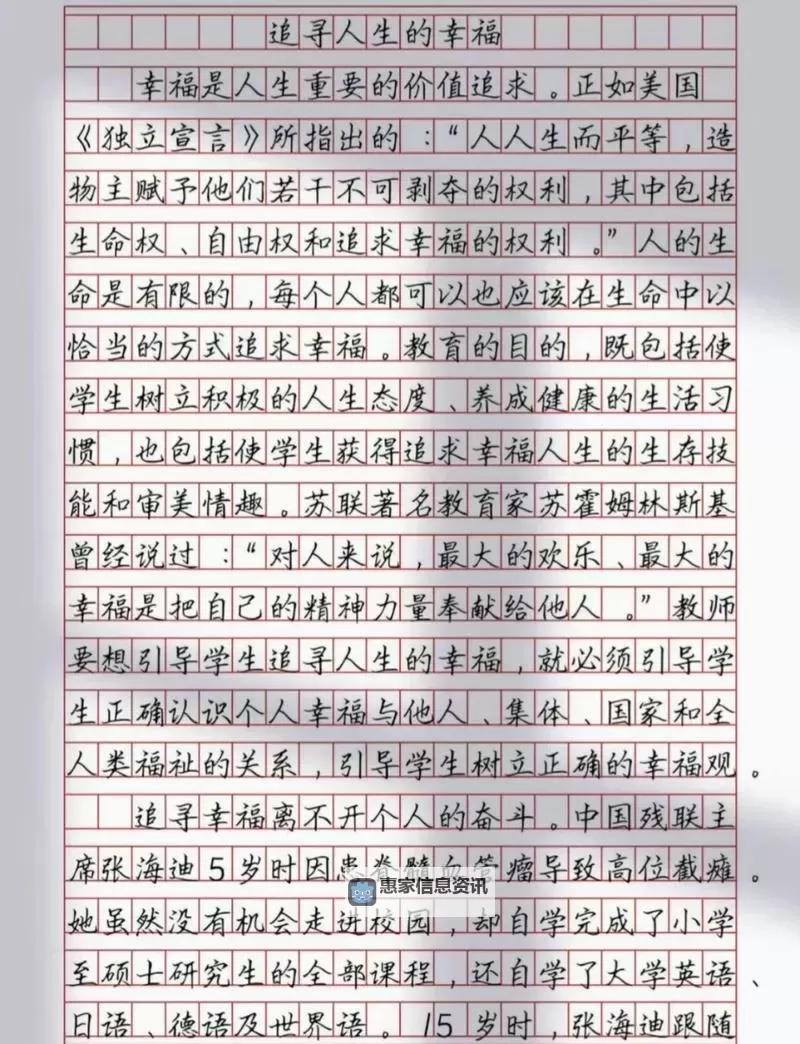 追寻人生的幸福
幸福是人生重要的价值追求。正如美国
《独立宣言》所指出的：“人人生而平等，造
物主赋予他们若干不可剥夺的权利，其中包括
生命权、自由权和追求幸福的权利。”人的生
命是有限的，每个人都可以也应该在生命中以
恰当的方式追求幸福。教育的目的，既包括使
学生树立积极的人生态度、养成健康的生活习
惯，也包括使学生获得追求幸福人生的生存技
能和审美情趣。苏联著名教育家苏霍姆林斯基
曾经说过：“对人来说，最大的欢乐、最大的
幸福是把自己的精神力量奉献给他人。”教师
要想引导学生追寻人生的幸福，就必须引导学
生正确认识个人幸福与他人、集体、国家和全
人类福祉的关系，引导学生树立正确的幸福观。
追寻幸福离不开个人的奋斗。中国残联主
席张海迪5岁时因患脊髓血管瘤导致高位截瘫。
惠家信息资讯
她虽然没有机会走进校园，却自学完成了小学
至硕士研究生的全部课程，还自学了大学英语、
日语、德语及世界语。15岁时，张海迪跟随